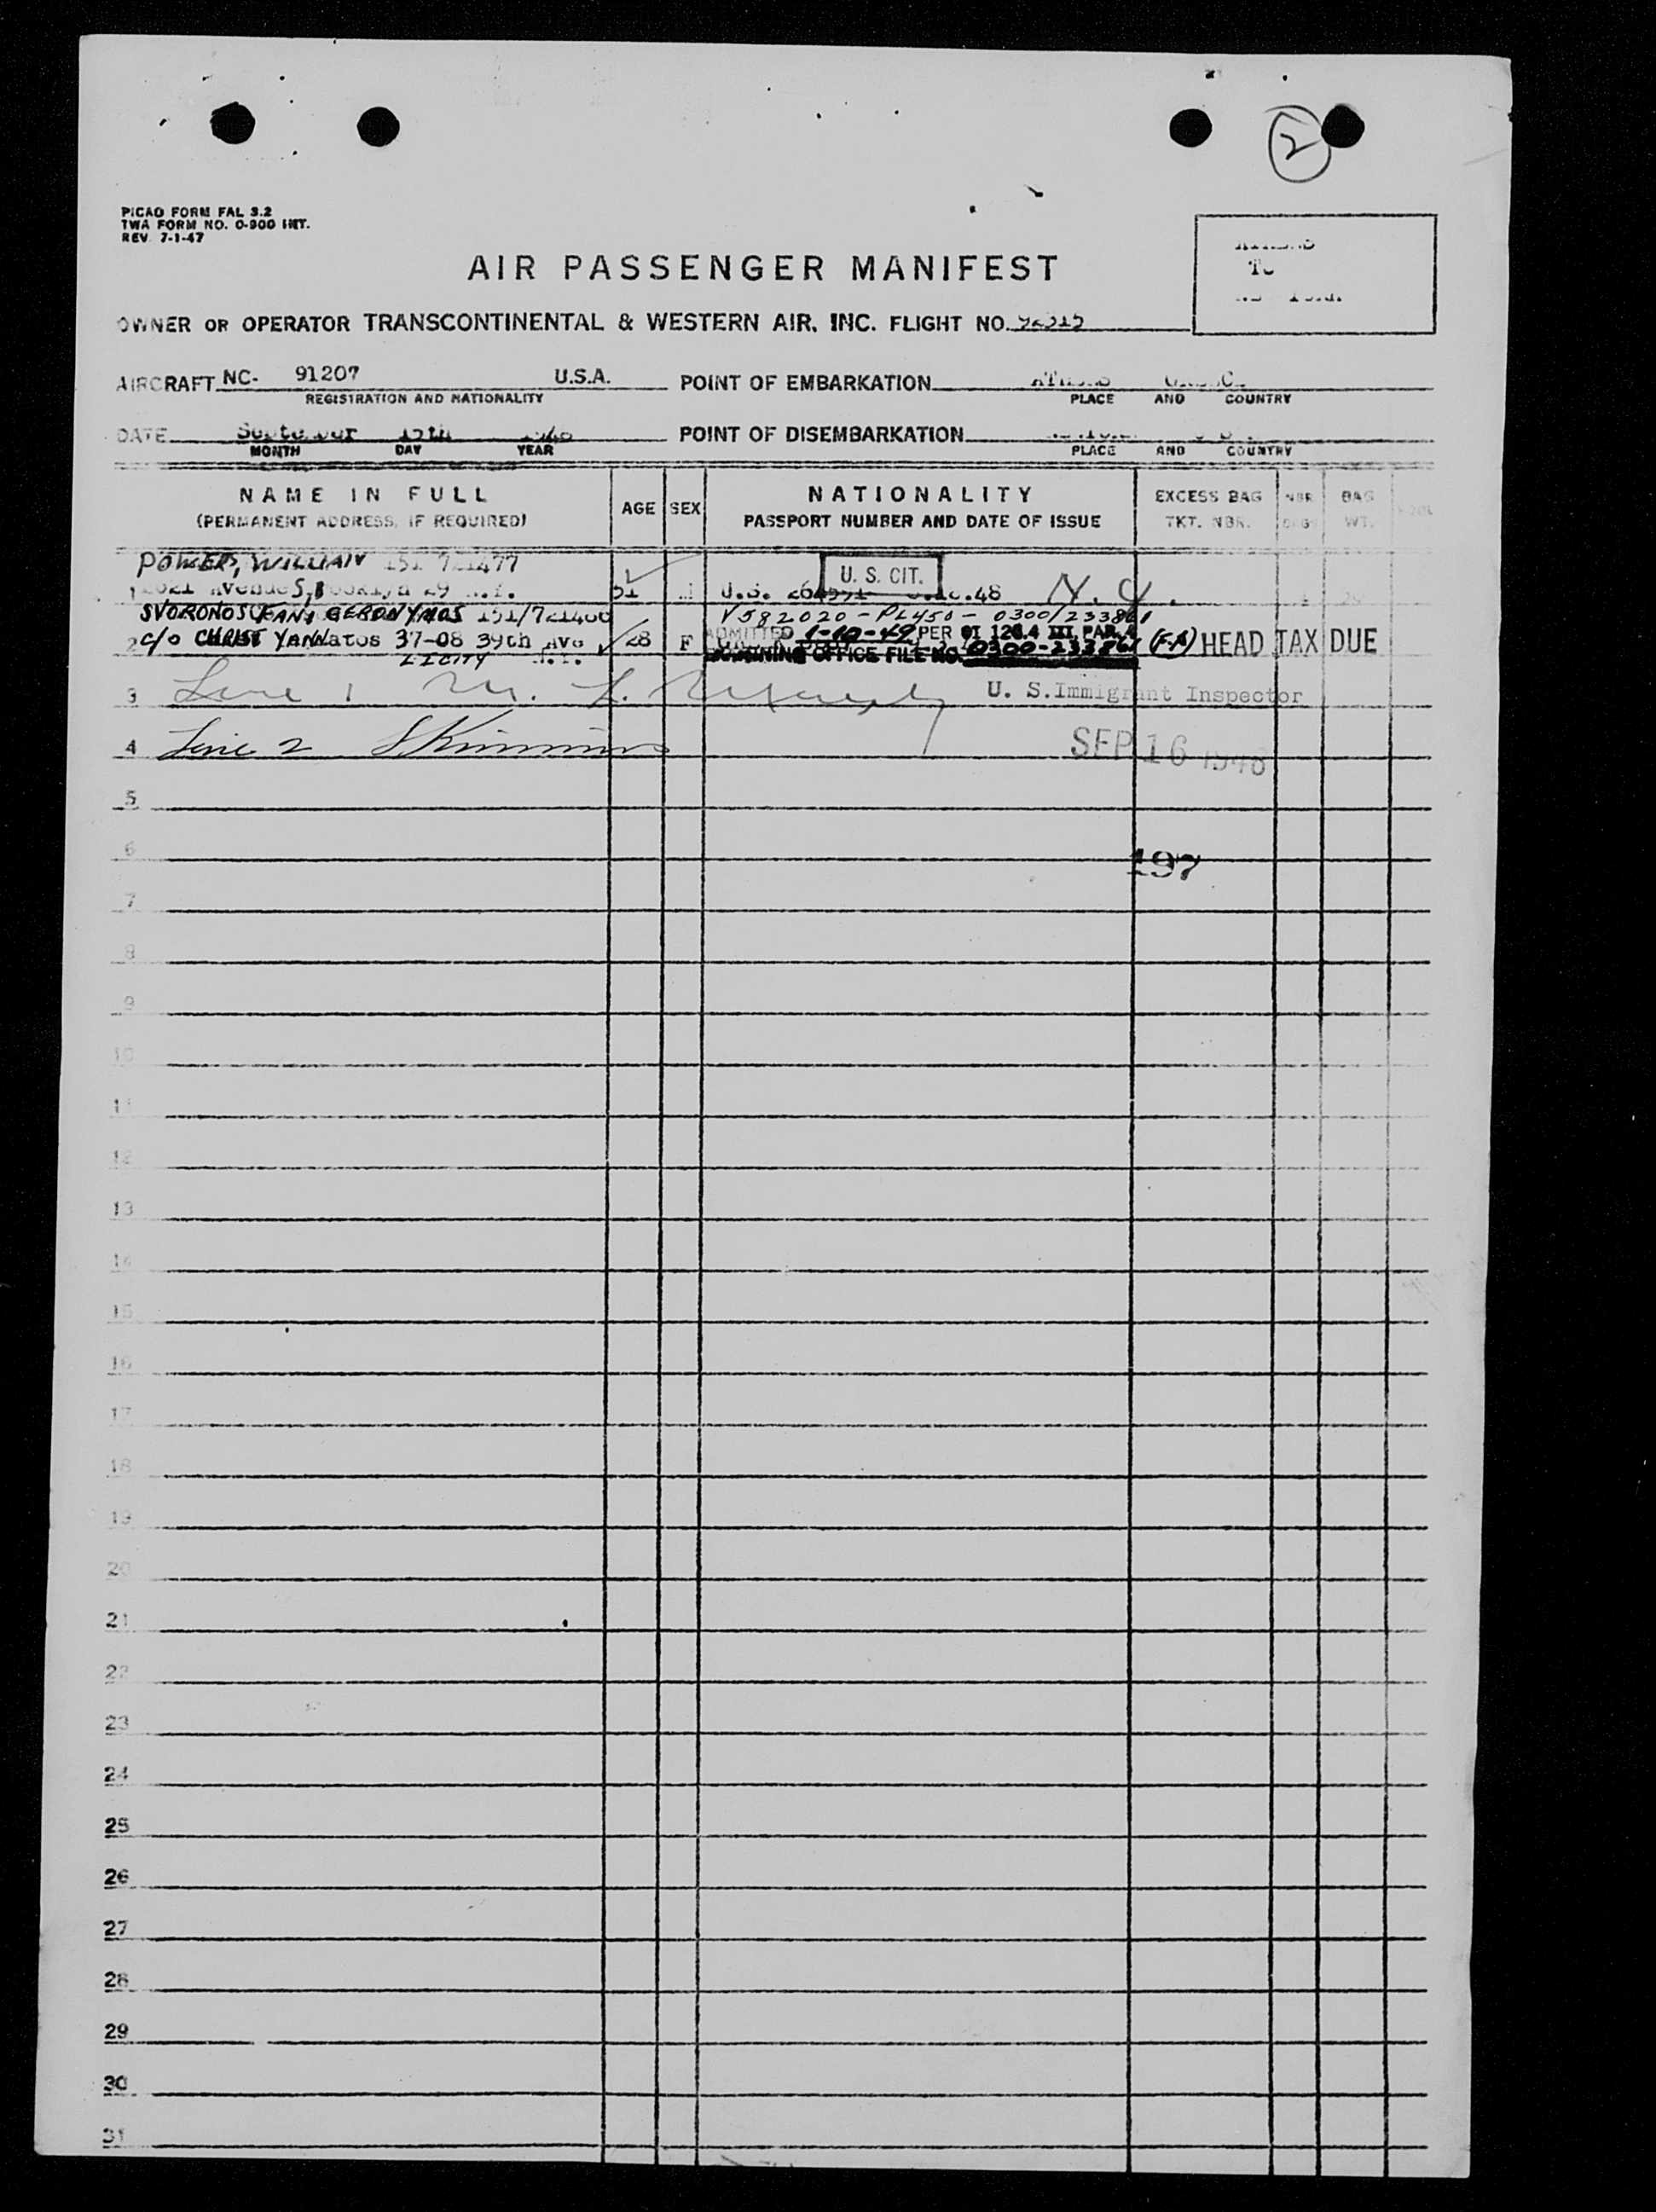 2
PICAO FORM FAL 3.2
TWA FORM NO. 0-900 INT.
REV. 7-1-47
ATHENS
TO
AIR PASSENGER MANIFEST
OWNER OR OPERATOR TRANSCONTINENTAL & WESTERN AIR, INC. FLIGHT NO. 92315
AIRCRAFT NC- 91207 U.S.A. POINT OF EMBARKATION ATHENS
REGISTRATION AND NATIONALITY PLACE AND COUNTRY
DATE September 15th 1948 POINT OF DISEMBARKATION
MONTH DAY YEAR PLACE AND COUNTRY
NAME IN FULL AGE SEX NATIONALITY EXCESS BAG NBR BAG
(PERMANENT ADDRESS, IF REQUIRED) PASSPORT NUMBER AND DATE OF ISSUE TKT. NBR. BAGS WT.
POWER, WILLIAM 151 721477 U. S. CIT.
1 2621 Avenue S, Brooklyn 29 N.Y. 51 M U.S. .48
SVORONOS FANY GERONYMOS 151/721480 V582020 - PL450 - 0300/233861
2 c/o CHRIST YANNatos 37-08 39th Ave 28 F ADMITTED 1-10-49 PER OI 126.4 III, PAR. (FA) HEAD TAX DUE
L I CITY N.Y. EXAMINING OFFICE FILE NO. 0300-233861
3 Line 1 M. L. U. S. Immigrant Inspector
4 Line 2 SEP 16 1948
5
6 197
7
8
9
10
11
12
13
14
15
16
17
18
19
20
21
22
23
24
25
26
27
28
29
30
31